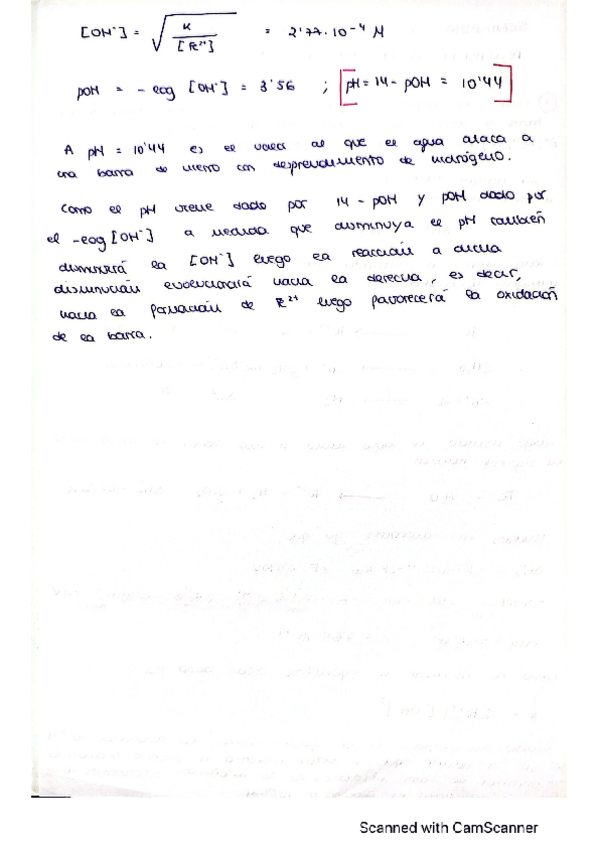 [OH⁻] = √(K / [Fe²⁺]) = 2'77·10⁻⁴ M
pOH = - log [OH⁻] = 3'56 ; pH = 14 - pOH = 10'44
A pH = 10'44 es el valor al que el agua ataca a
una barra de hierro con desprendimiento de hidrógeno.
Como el pH viene dado por 14 - pOH y pOH dado por
el -log [OH⁻] a medida que disminuya el pH también
disminuirá la [OH⁻] luego la reacción a dicha
disminución evolucionará hacia la derecha, es decir,
hacia la formación de Fe²⁺ luego favorecerá la oxidación
de la barra.
Scanned with CamScanner